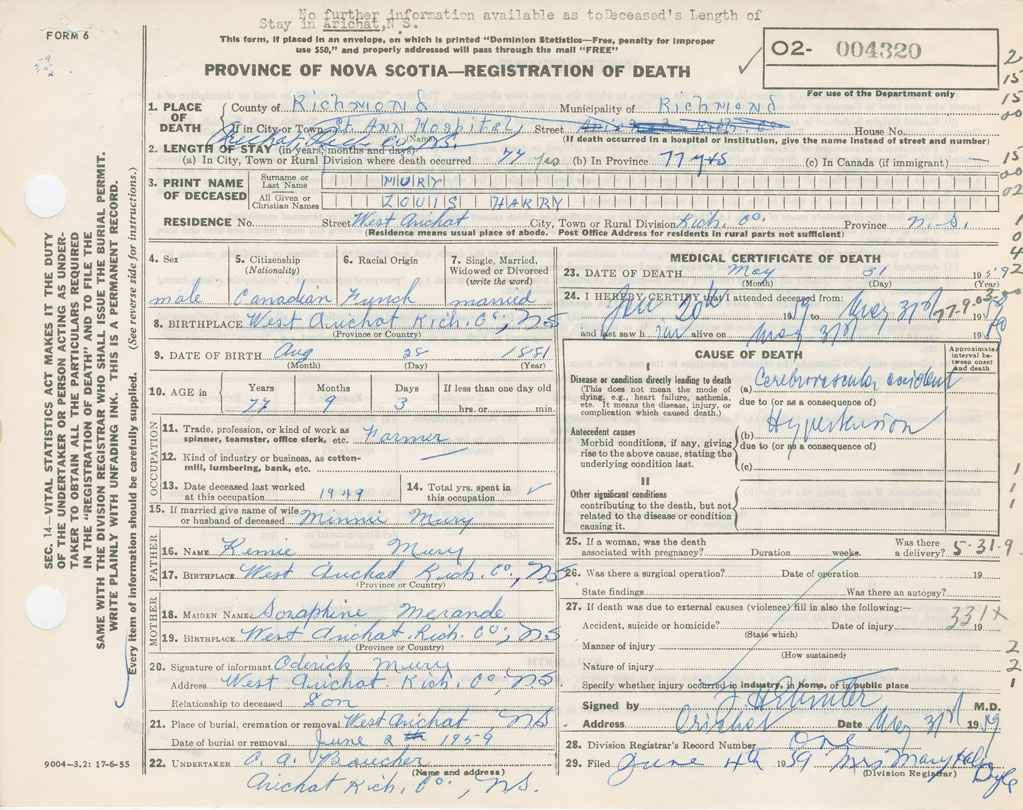 No further information available as to Deceased's Length of
Stay in Arichat, N S.
FORM 6
This form, if placed in an envelope, on which is printed "Dominion Statistics—Free, penalty for improper
use $50," and properly addressed will pass through the mail "FREE"
PROVINCE OF NOVA SCOTIA—REGISTRATION OF DEATH
O2- 004320
For use of the Department only
1. PLACE OF DEATH
County of Richmond Municipality of Richmond
If in City or Town St Ann Hospital, Street House No.
(Name) (If death occurred in a hospital or institution, give the name instead of street and number)
2. LENGTH OF STAY (in years, months and days)
(a) In City, Town or Rural Division where death occurred 77 yrs (b) In Province 77 yrs (c) In Canada (if immigrant) —
3. PRINT NAME OF DECEASED
Surname or Last Name MURY
All Given or Christian Names LOUIS HARRY
RESIDENCE No. Street West Arichat City, Town or Rural Division Rich. Co, Province N.S.
(Residence means usual place of abode. Post Office Address for residents in rural parts not sufficient)
4. Sex male
5. Citizenship (Nationality) Canadian
6. Racial Origin French
7. Single, Married, Widowed or Divorced (write the word) married
8. BIRTHPLACE West Arichat Rich. Co, NS
(Province or Country)
9. DATE OF BIRTH Aug 28 1881
(Month) (Day) (Year)
10. AGE in Years 77 Months 9 Days 3 If less than one day old hrs. or min.
OCCUPATION
11. Trade, profession, or kind of work as spinner, teamster, office clerk, etc. Farmer
12. Kind of industry or business, as cotton-mill, lumbering, bank, etc.
13. Date deceased last worked at this occupation 1949
14. Total yrs. spent in this occupation
15. If married give name of wife or husband of deceased Minnie Mury
FATHER
16. NAME Remie Mury
17. BIRTHPLACE West Arichat Rich. Co, NS
(Province or Country)
MOTHER
18. MAIDEN NAME Soraphine Merande
19. BIRTHPLACE West Arichat, Rich. Co, NS
(Province or Country)
20. Signature of informant Oderick Mury
Address West Arichat Rich. Co, NS
Relationship to deceased Son
21. Place of burial, cremation or removal West Arichat NS.
Date of burial or removal June 2 1959
22. UNDERTAKER A. A. Boucher
(Name and address)
Arichat Rich. Co, NS.
9004-3.2: 17-6-55
SEC. 14—VITAL STATISTICS ACT MAKES IT THE DUTY
OF THE UNDERTAKER OR PERSON ACTING AS UNDER-
TAKER TO OBTAIN ALL THE PARTICULARS REQUIRED
IN THE "REGISTRATION OF DEATH" AND TO FILE THE
SAME WITH THE DIVISION REGISTRAR WHO SHALL ISSUE THE BURIAL PERMIT.
WRITE PLAINLY WITH UNFADING INK. THIS IS A PERMANENT RECORD.
Every item of information should be carefully supplied. (See reverse side for instructions.)
MEDICAL CERTIFICATE OF DEATH
23. DATE OF DEATH May 31 1959
(Month) (Day) (Year)
24. I HEREBY CERTIFY that I attended deceased from:
Jan 20th 19 to May 31st 1959
and last saw h im alive on May 31st 19
CAUSE OF DEATH
Approximate interval between onset and death
I
Disease or condition directly leading to death
(This does not mean the mode of dying, e.g., heart failure, asthenia, etc. It means the disease, injury, or complication which caused death.)
(a) Cerebrovascular accident
due to (or as a consequence of)
Antecedent causes
Morbid conditions, if any, giving rise to the above cause, stating the underlying condition last.
(b) Hypertension
due to (or as a consequence of)
(c)
II
Other significant conditions
contributing to the death, but not related to the disease or condition causing it.
25. If a woman, was the death associated with pregnancy? Duration weeks. Was there a delivery? 5-31-9
26. Was there a surgical operation? Date of operation 19
State findings Was there an autopsy?
27. If death was due to external causes (violence) fill in also the following:—
Accident, suicide or homicide? Date of injury 19 331X
(State which)
Manner of injury
(How sustained)
Nature of injury
Specify whether injury occurred in industry, in home, or in public place
Signed by M.D.
Address Arichat Date May 31st 1959
28. Division Registrar's Record Number One
29. Filed June 4th 1959 Mrs Mary Doyle
(Division Registrar)